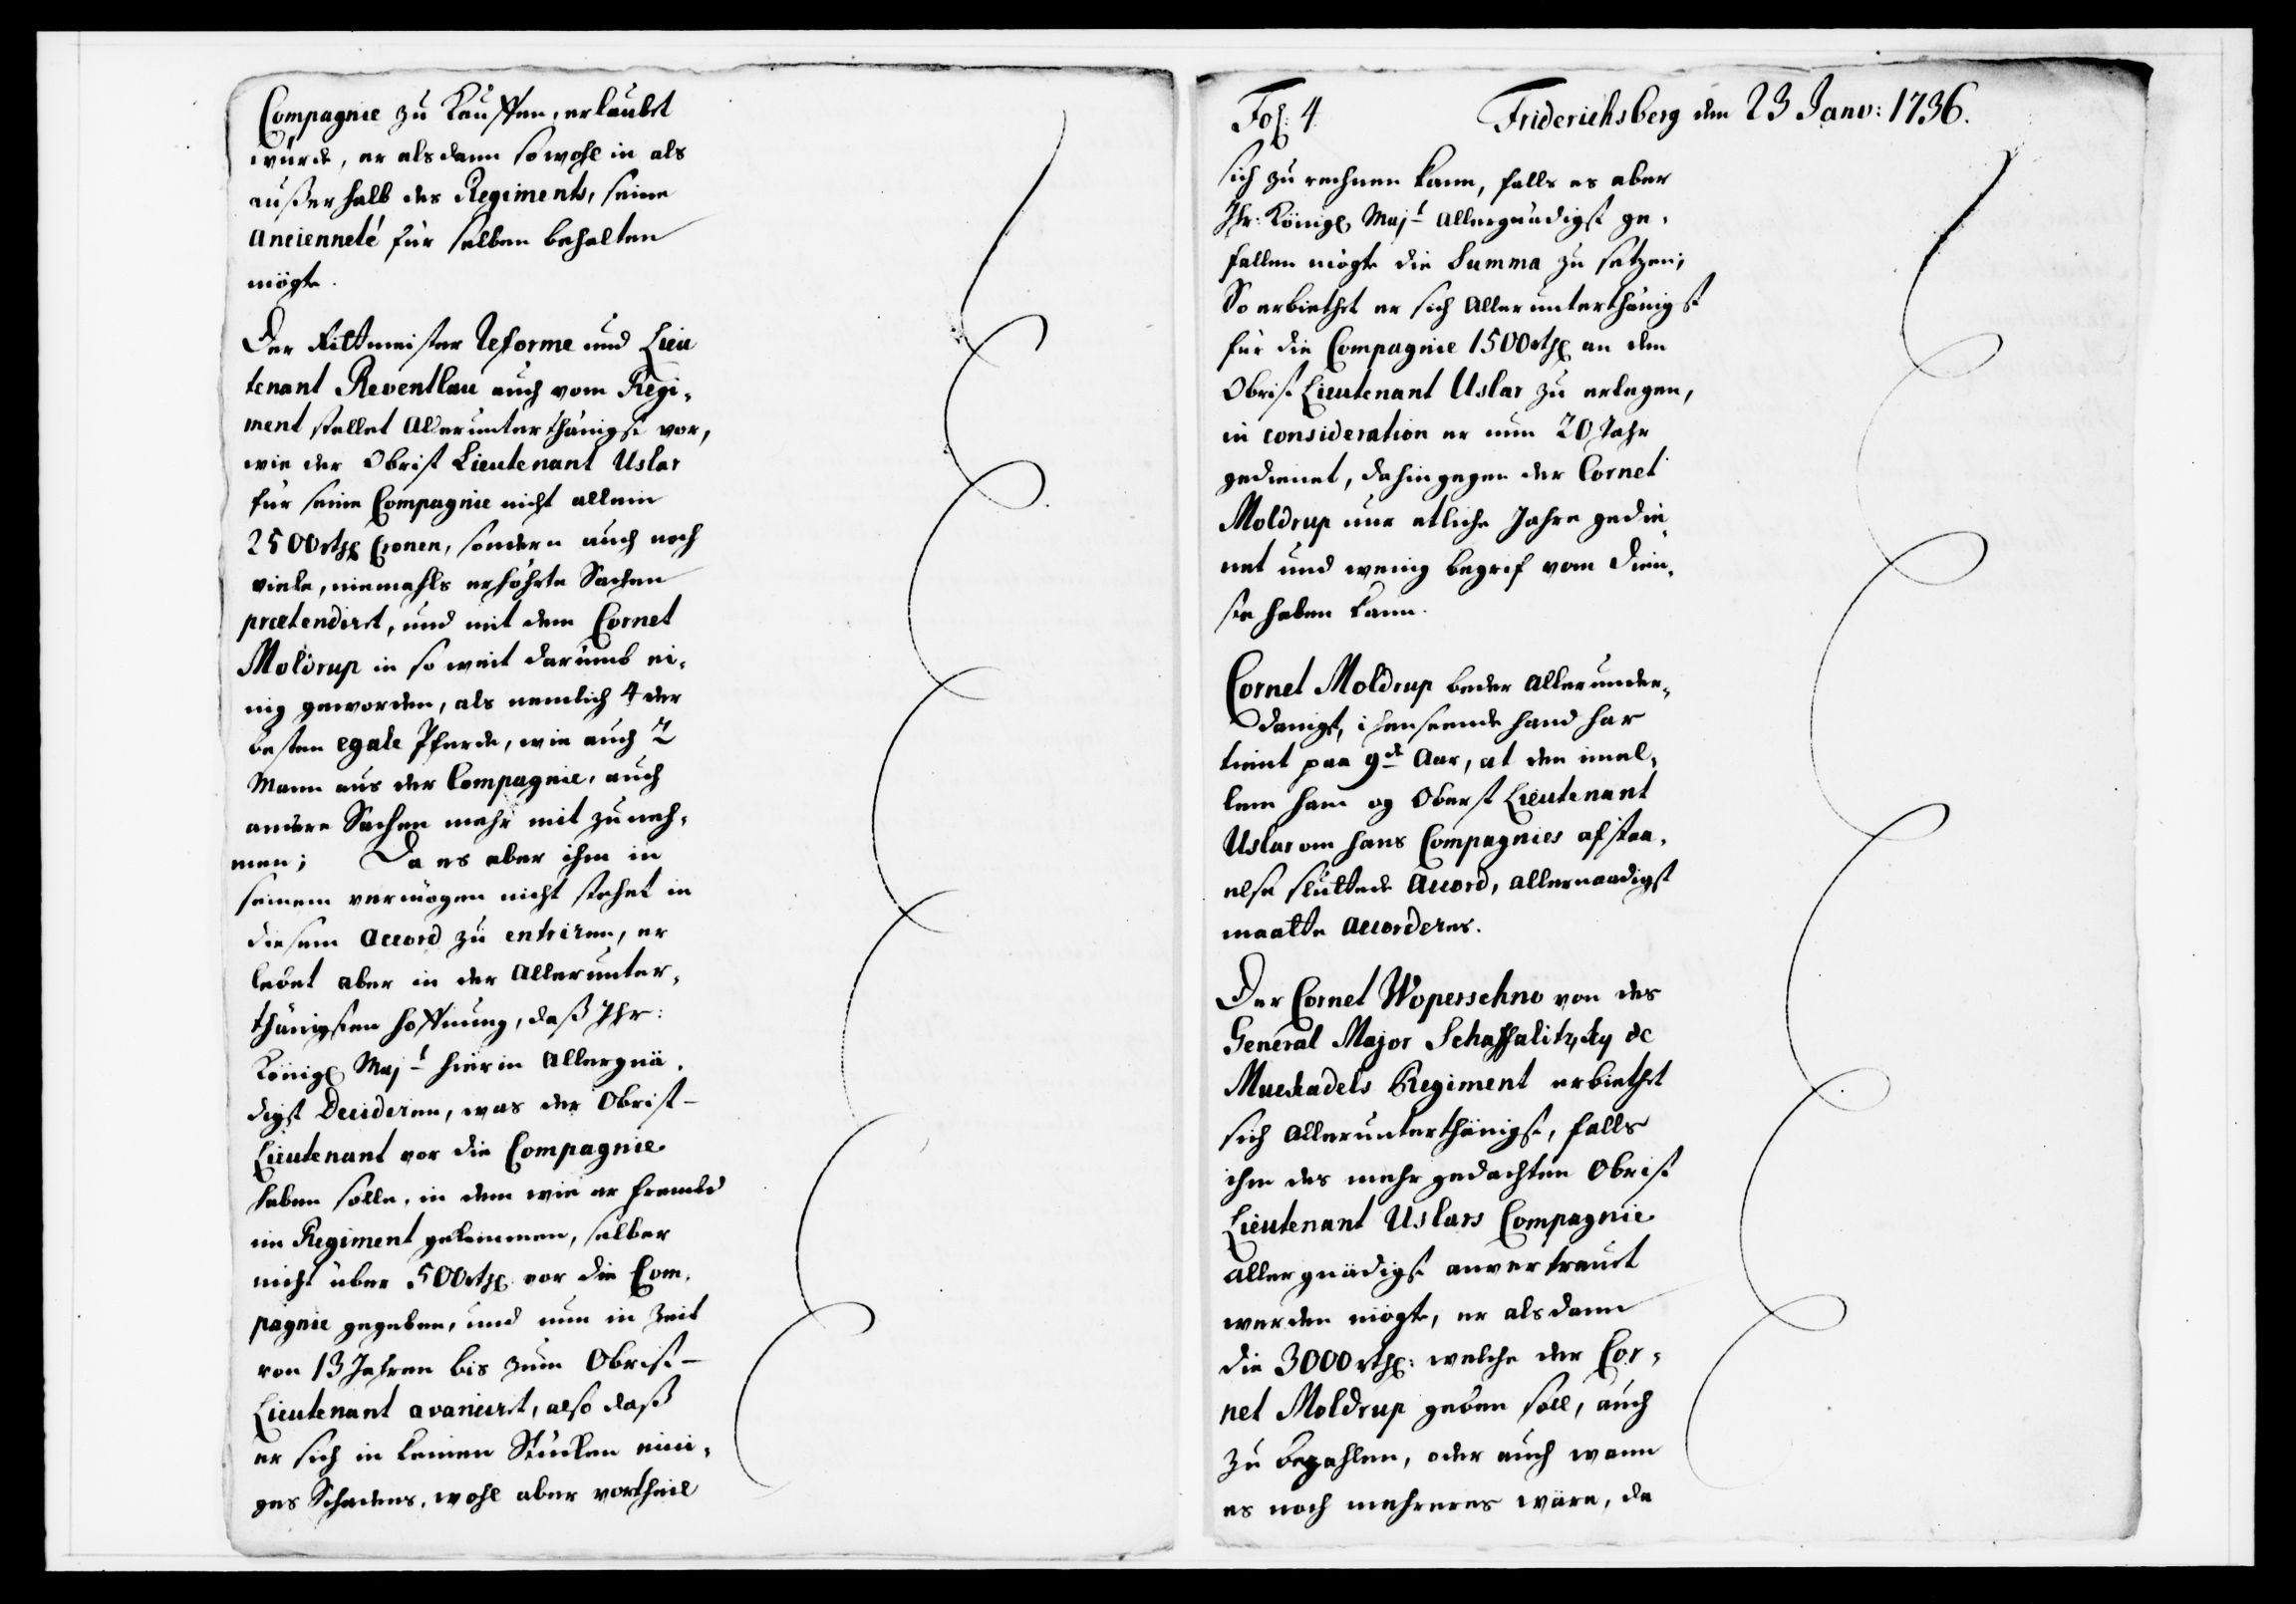 Compagnie zu Kauffen, erlaubet
würde, er als dann sowohl in als
außerhalb des Regiments, seine
Ancienneté für selben behalten
mögte.
Der Rittmeister Reforme und Lieu
tenant Reventlau auch vom Regi,
ment stellet Allerunterthänigst vor,
wie der Obrist Lieutenant Uslar
für seine Compagnie nicht allein
2500 rthl Cronen, sondern auch noch
viele, niemahls erhöhrte Sachen
prætendiret, und mit dem Cornet
Moldrup in so weit darumb ei,
nig geworden, als nemlich 4 der
besten egale Pferde, wie auch 2
Mann aus der Compagnie, auch
andere Sachen mehr mit zu neh,
men; Da es aber ihm in
seinem vermögen nicht stehet in
diesem Accord zu entriren, er
lebet aber in der Allerunter,
thänigsten hoffnung, daß Ihr:
Königl Majt hierin Allergnä,
digst Decideren, was der Obrist-
Lieutenant vor die Compagnie
haben solle, in dem wie er frembd
im Regiment gekommen, selber
nicht über 500 rthl vor die Com,
pagnie gegeben, und nun in Zeit
von 13 Jahren bis zum Obrist-
Lieutenant avanciret, also daß
er sich in keinen Stücken eini,
ges Schadens, wohl aber vortheil
Fol: 4. Friderichsberg den 23 Janv: 1736.
sich zu rechnen kann, falls es aber
Ihr: Königl Majt Allergnädigst ge,
fallen mögte die Summa zu setzen;
So erbiethet er sich Allerunterthänigst
für die Compagnie 1500 rthl an den
Obrist Lieutenant Uslar zu erlegen,
in consideration er nun 20 Jahr
gedienet, dahingegen der Cornet
Moldrup nur etliche Jahre gedie,
net und wenig begrif vom Dien,
ste haben kann.
Cornet Moldrup beder Allerunder,
danigst, i henseende hand har
tient paa 9de Aar, at den imel,
lem ham og Oberst Lieutenant
Uslar om hans Compagnies afstaa,
else sluttede Accord, allernaadigst
maatte Accorderes.
Der Cornet Woperschno von des
General Major Schaffalitzky de
Muckadels Regiment erbiethet
sich Allerunterthänigst, falls
ihm des mehr gedachten Obrist
Lieutenant Uslars Compagnie
Allergnädigst anvertrauet
werden mögte, er als dann
die 3000 rthl: welche der Cor,
net Moldrup geben soll, auch
zu bezahlen, oder auch wann
es noch mehreres wäre, da